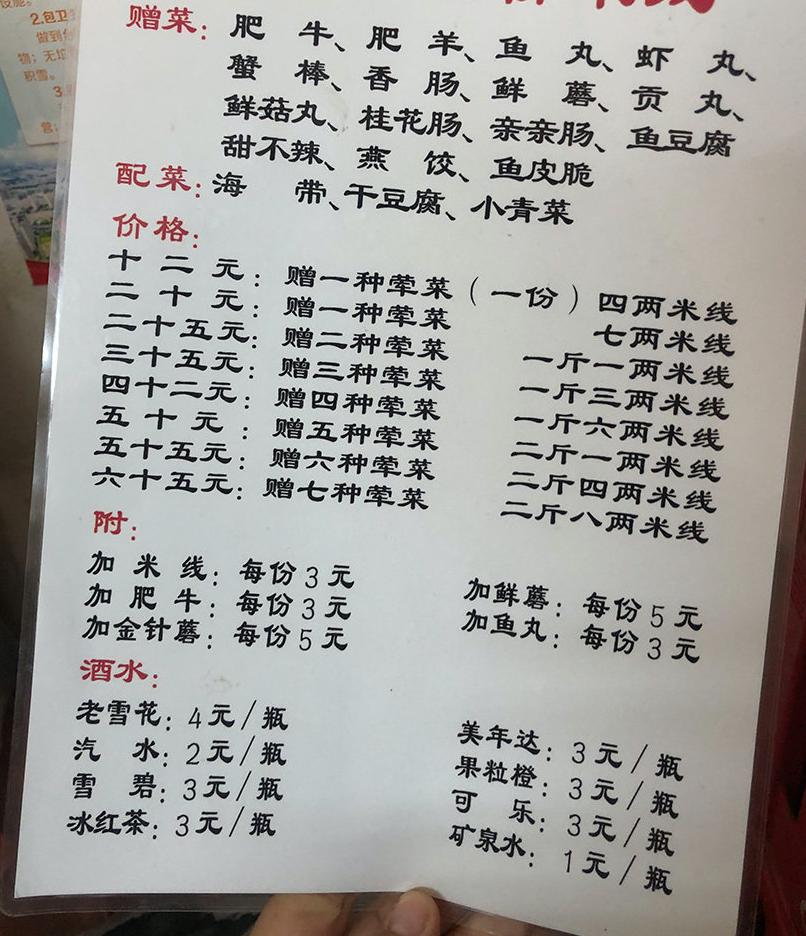 2.包卫生
做到
物；无垃
积雪。
赠菜：肥 牛、肥 羊、鱼 丸、虾 丸、
蟹 棒、香 肠、鲜 蘑、贡 丸、
鲜菇丸、桂花肠、亲亲肠、鱼豆腐
甜不辣、燕 饺、鱼皮脆
配菜：海 带、干豆腐、小青菜
价格：
十二元：赠一种荤菜（一份）四两米线
二十元：赠一种荤菜 七两米线
二十五元：赠二种荤菜 一斤一两米线
三十五元：赠三种荤菜 一斤三两米线
四十二元：赠四种荤菜 一斤六两米线
五十元：赠五种荤菜 二斤一两米线
五十五元：赠六种荤菜 二斤四两米线
六十五元：赠七种荤菜 二斤八两米线
附：
加米线：每份3元
加肥牛：每份3元 加鲜蘑：每份5元
加金针蘑：每份5元 加鱼丸：每份3元
酒水：
老雪花：4元/瓶 美年达：3元/瓶
汽 水：2元/瓶 果粒橙：3元/瓶
雪 碧：3元/瓶 可 乐：3元/瓶
冰红茶：3元/瓶 矿泉水：1元/瓶